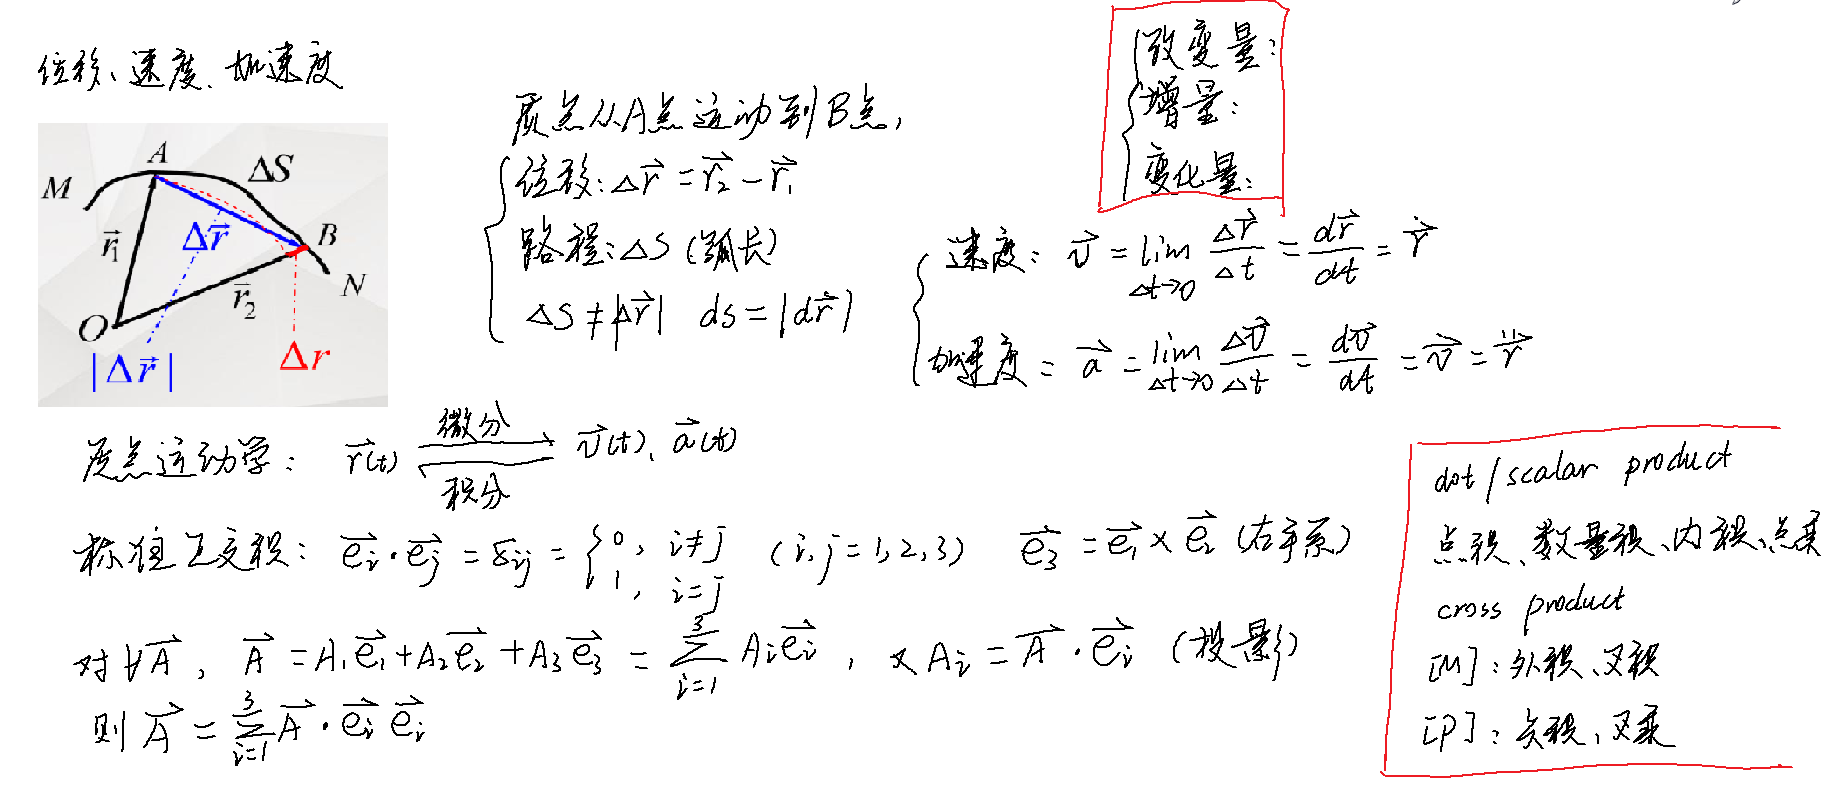 位移、速度、加速度
M A ΔS
r⃗₁ Δr⃗ B
O r⃗₂ N
|Δr⃗| Δr
质点从A点运动到B点,
位移: Δr⃗ = r⃗₂ − r⃗₁
路程: ΔS (弧长)
ΔS ≠ |Δr⃗| ds = |dr⃗|
改变量:
增量:
变化量:
速度: v⃗ = lim Δt→0 Δr⃗/Δt = dr⃗/dt = ṙ⃗
加速度 = a⃗ = lim Δt→0 Δv⃗/Δt = dv⃗/dt = v̇⃗ = r̈⃗
质点运动学: r⃗(t) 微分 积分 v⃗(t)、a⃗(t)
标准正交积: e⃗ᵢ · e⃗ⱼ = δᵢⱼ = { 0, i≠j 1, i=j (i,j=1,2,3) e⃗₃ = e⃗₁ × e⃗₂ (右手系)
对∀A⃗, A⃗ = A₁e⃗₁ + A₂e⃗₂ + A₃e⃗₃ = Σᵢ₌₁³ Aᵢe⃗ᵢ, 又 Aᵢ = A⃗ · e⃗ᵢ (投影)
则 A⃗ = Σᵢ₌₁³ A⃗ · e⃗ᵢ e⃗ᵢ
dot / scalar product
点积、数量积、内积、点乘
cross product
[M]: 外积、叉积
[P]: 矢积、叉乘